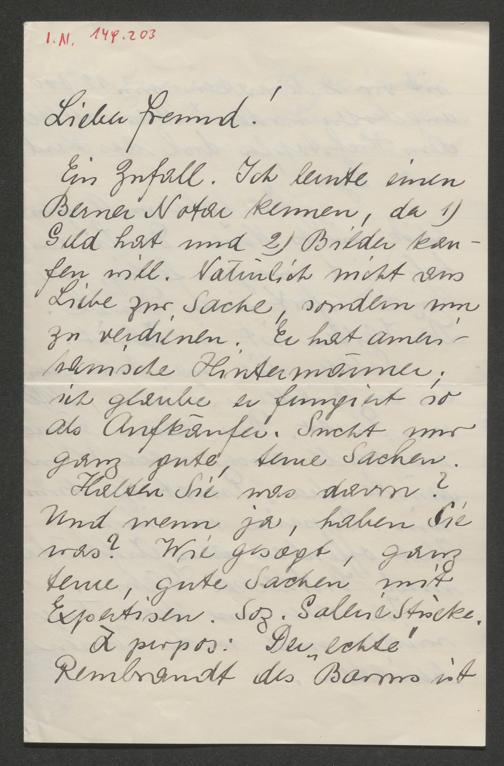 I.N. 149.203
Lieber Freund!
Ein Zufall. Ich lernte einen
Berner Notar kennen, der 1)
Geld hat und 2) Bilder kau-
fen will. Natürlich nicht aus
Liebe zur Sache, sondern um
zu verdienen. Er hat ameri-
kanische Hintermänner,
ich glaube er fungiert so
als Aufkäufer. Sucht nur
ganz gute, teure Sachen.
Halten Sie was davon?
Und wenn ja, haben Sie
was? Wie gesagt, ganz
teure, gute Sachen mit
Expertisen. Soz. Galerie Stücke.
À propos: Der „echte“
Rembrandt des Barons ist